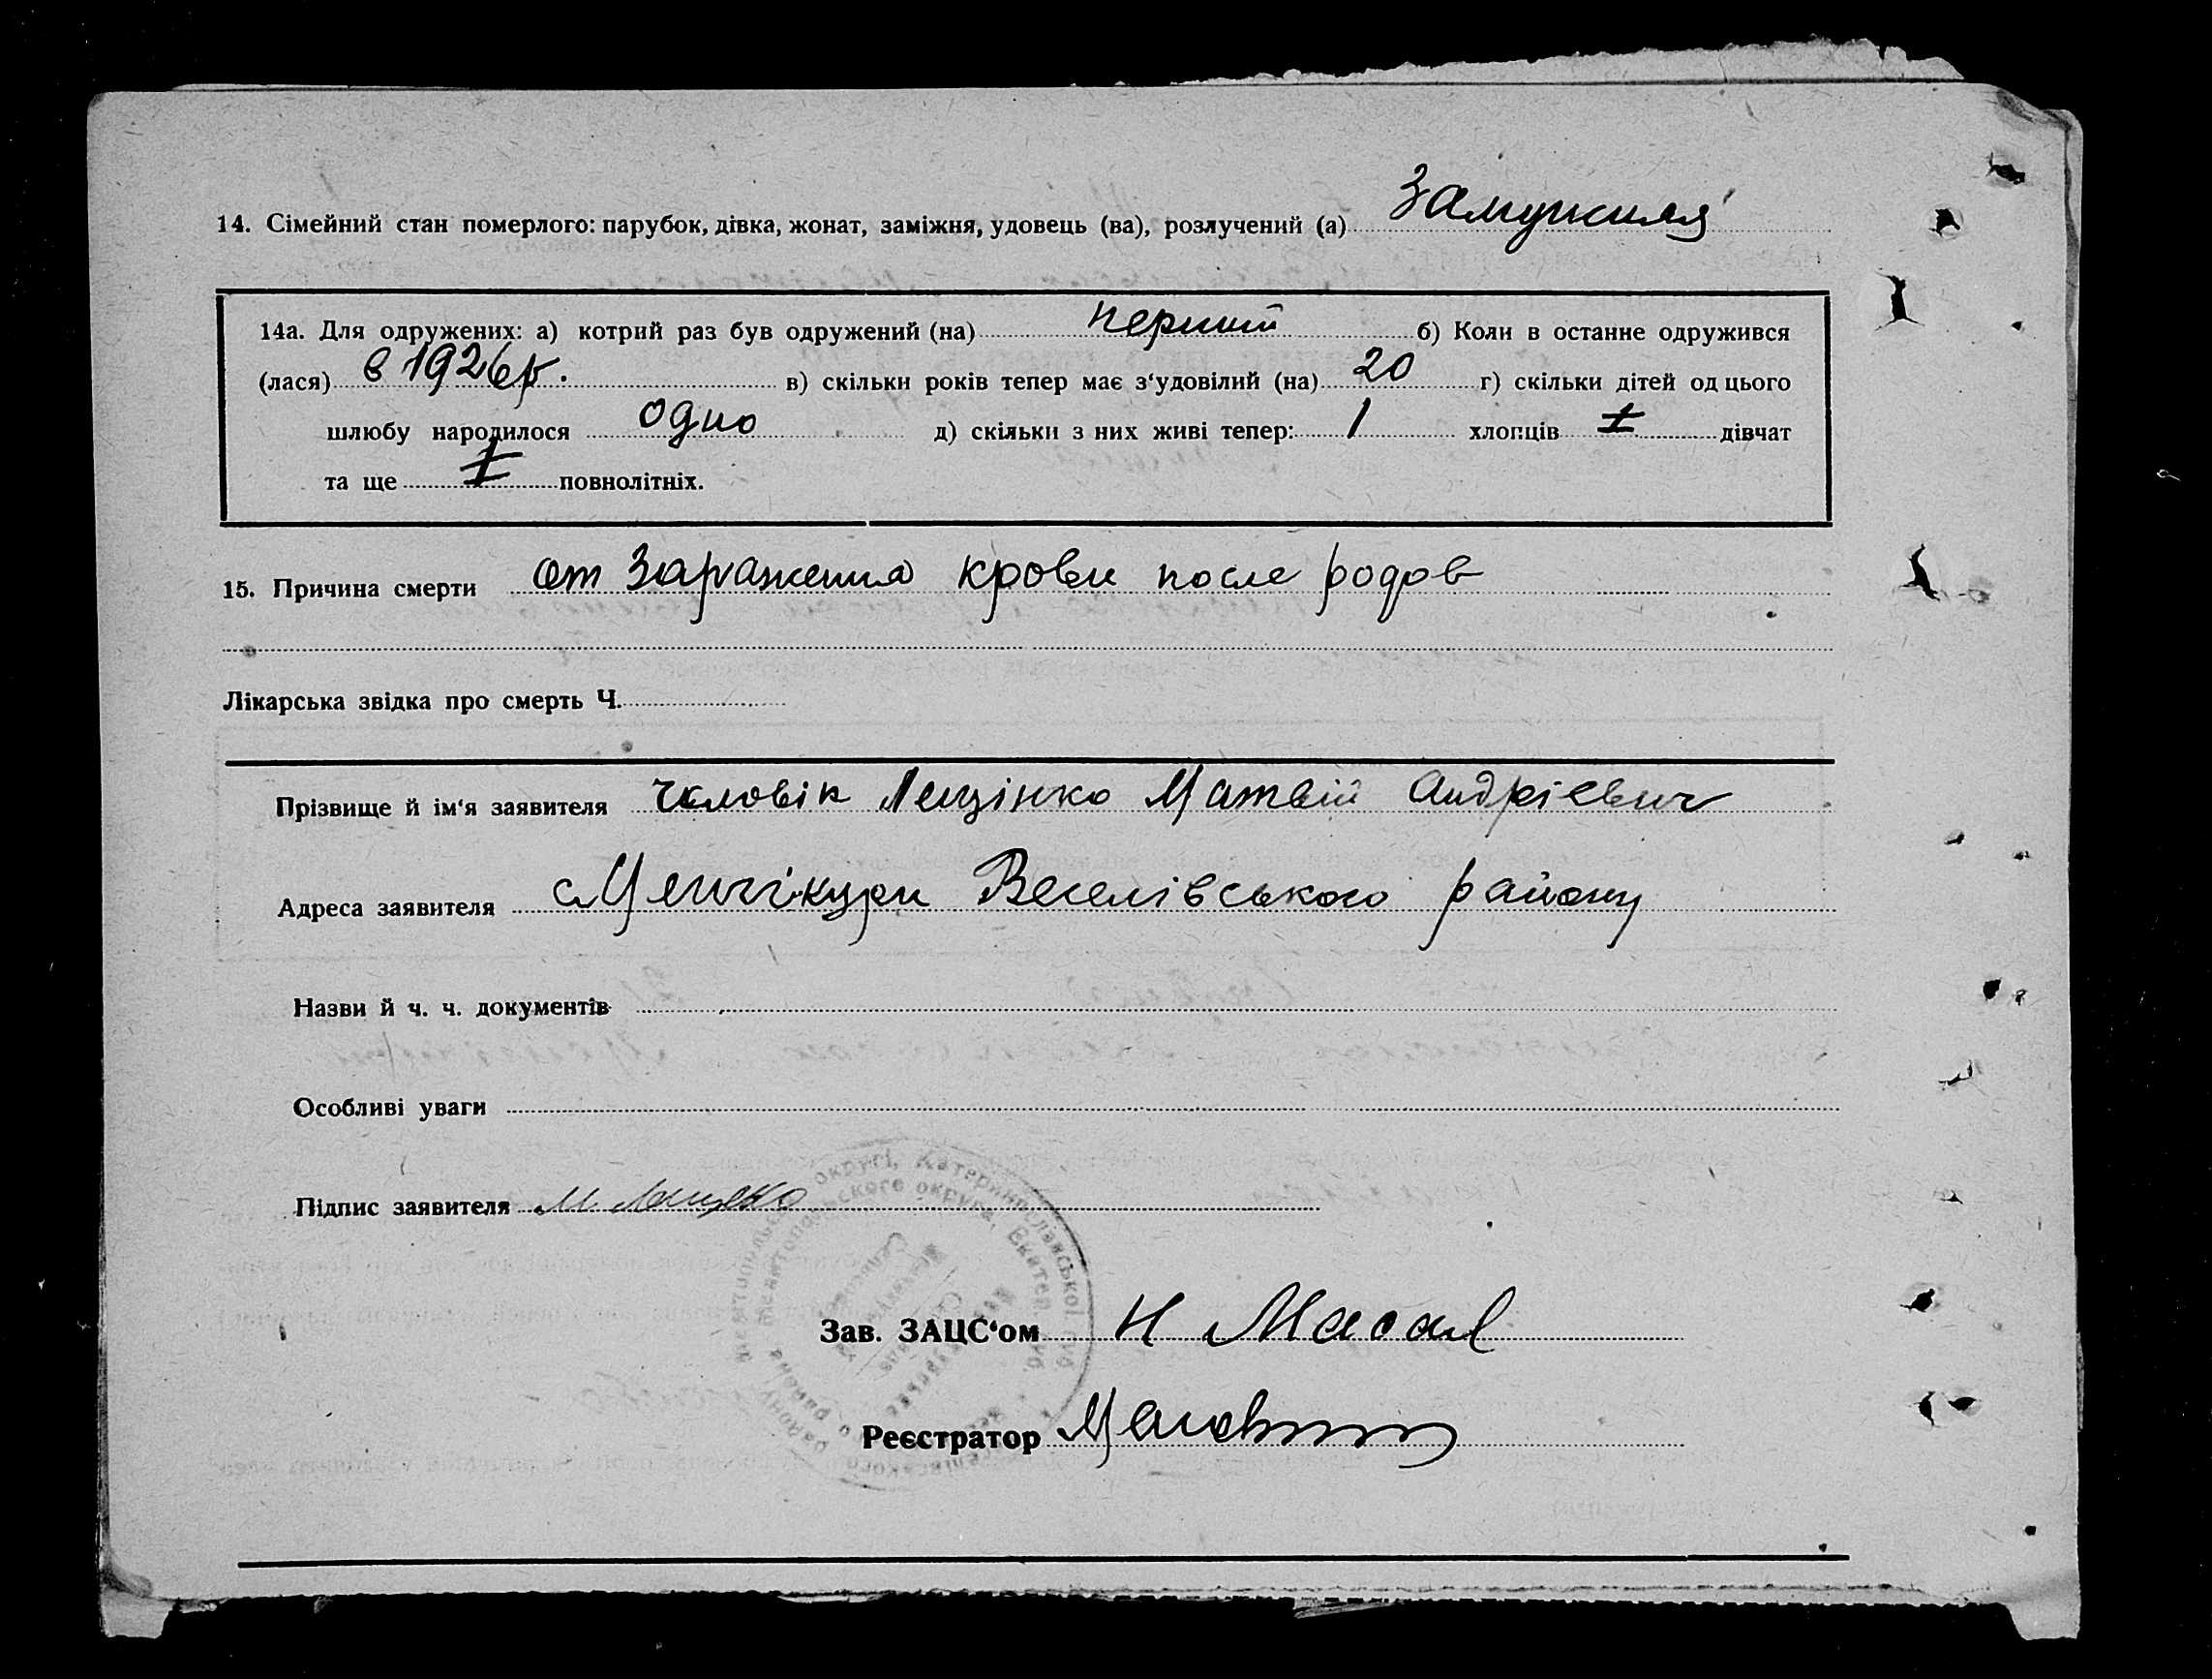 14. Сімейний стан померлого: парубок, дівка, жонат, заміжня, удовець (ва), розлучений (а) Замужняя
14а. Для одружених: а) котрий раз був одружений (на) перший б) Коли в останнє одружився
(лася) в 1926 р. в) скільки років тепер має з'удовілий (на) 20 г) скільки дітей од цього
шлюбу народилося одно д) скільки з них живі тепер: 1 хлопців дівчат
та ще повнолітніх.
15. Причина смерти от Заражения крови после родов
Лікарська звідка про смерть Ч.
Прізвище й ім'я заявителя чоловік Лещінко Матвій Андрієвич
Адреса заявителя с Менчікури Веселівського району
Назви й ч. ч. документів
Особливі уваги
Підпис заявителя М
округі, Катеринославської губ
округа, Екатер. губ.
району
района
Зав. ЗАЦС'ом Н
Реєстратор